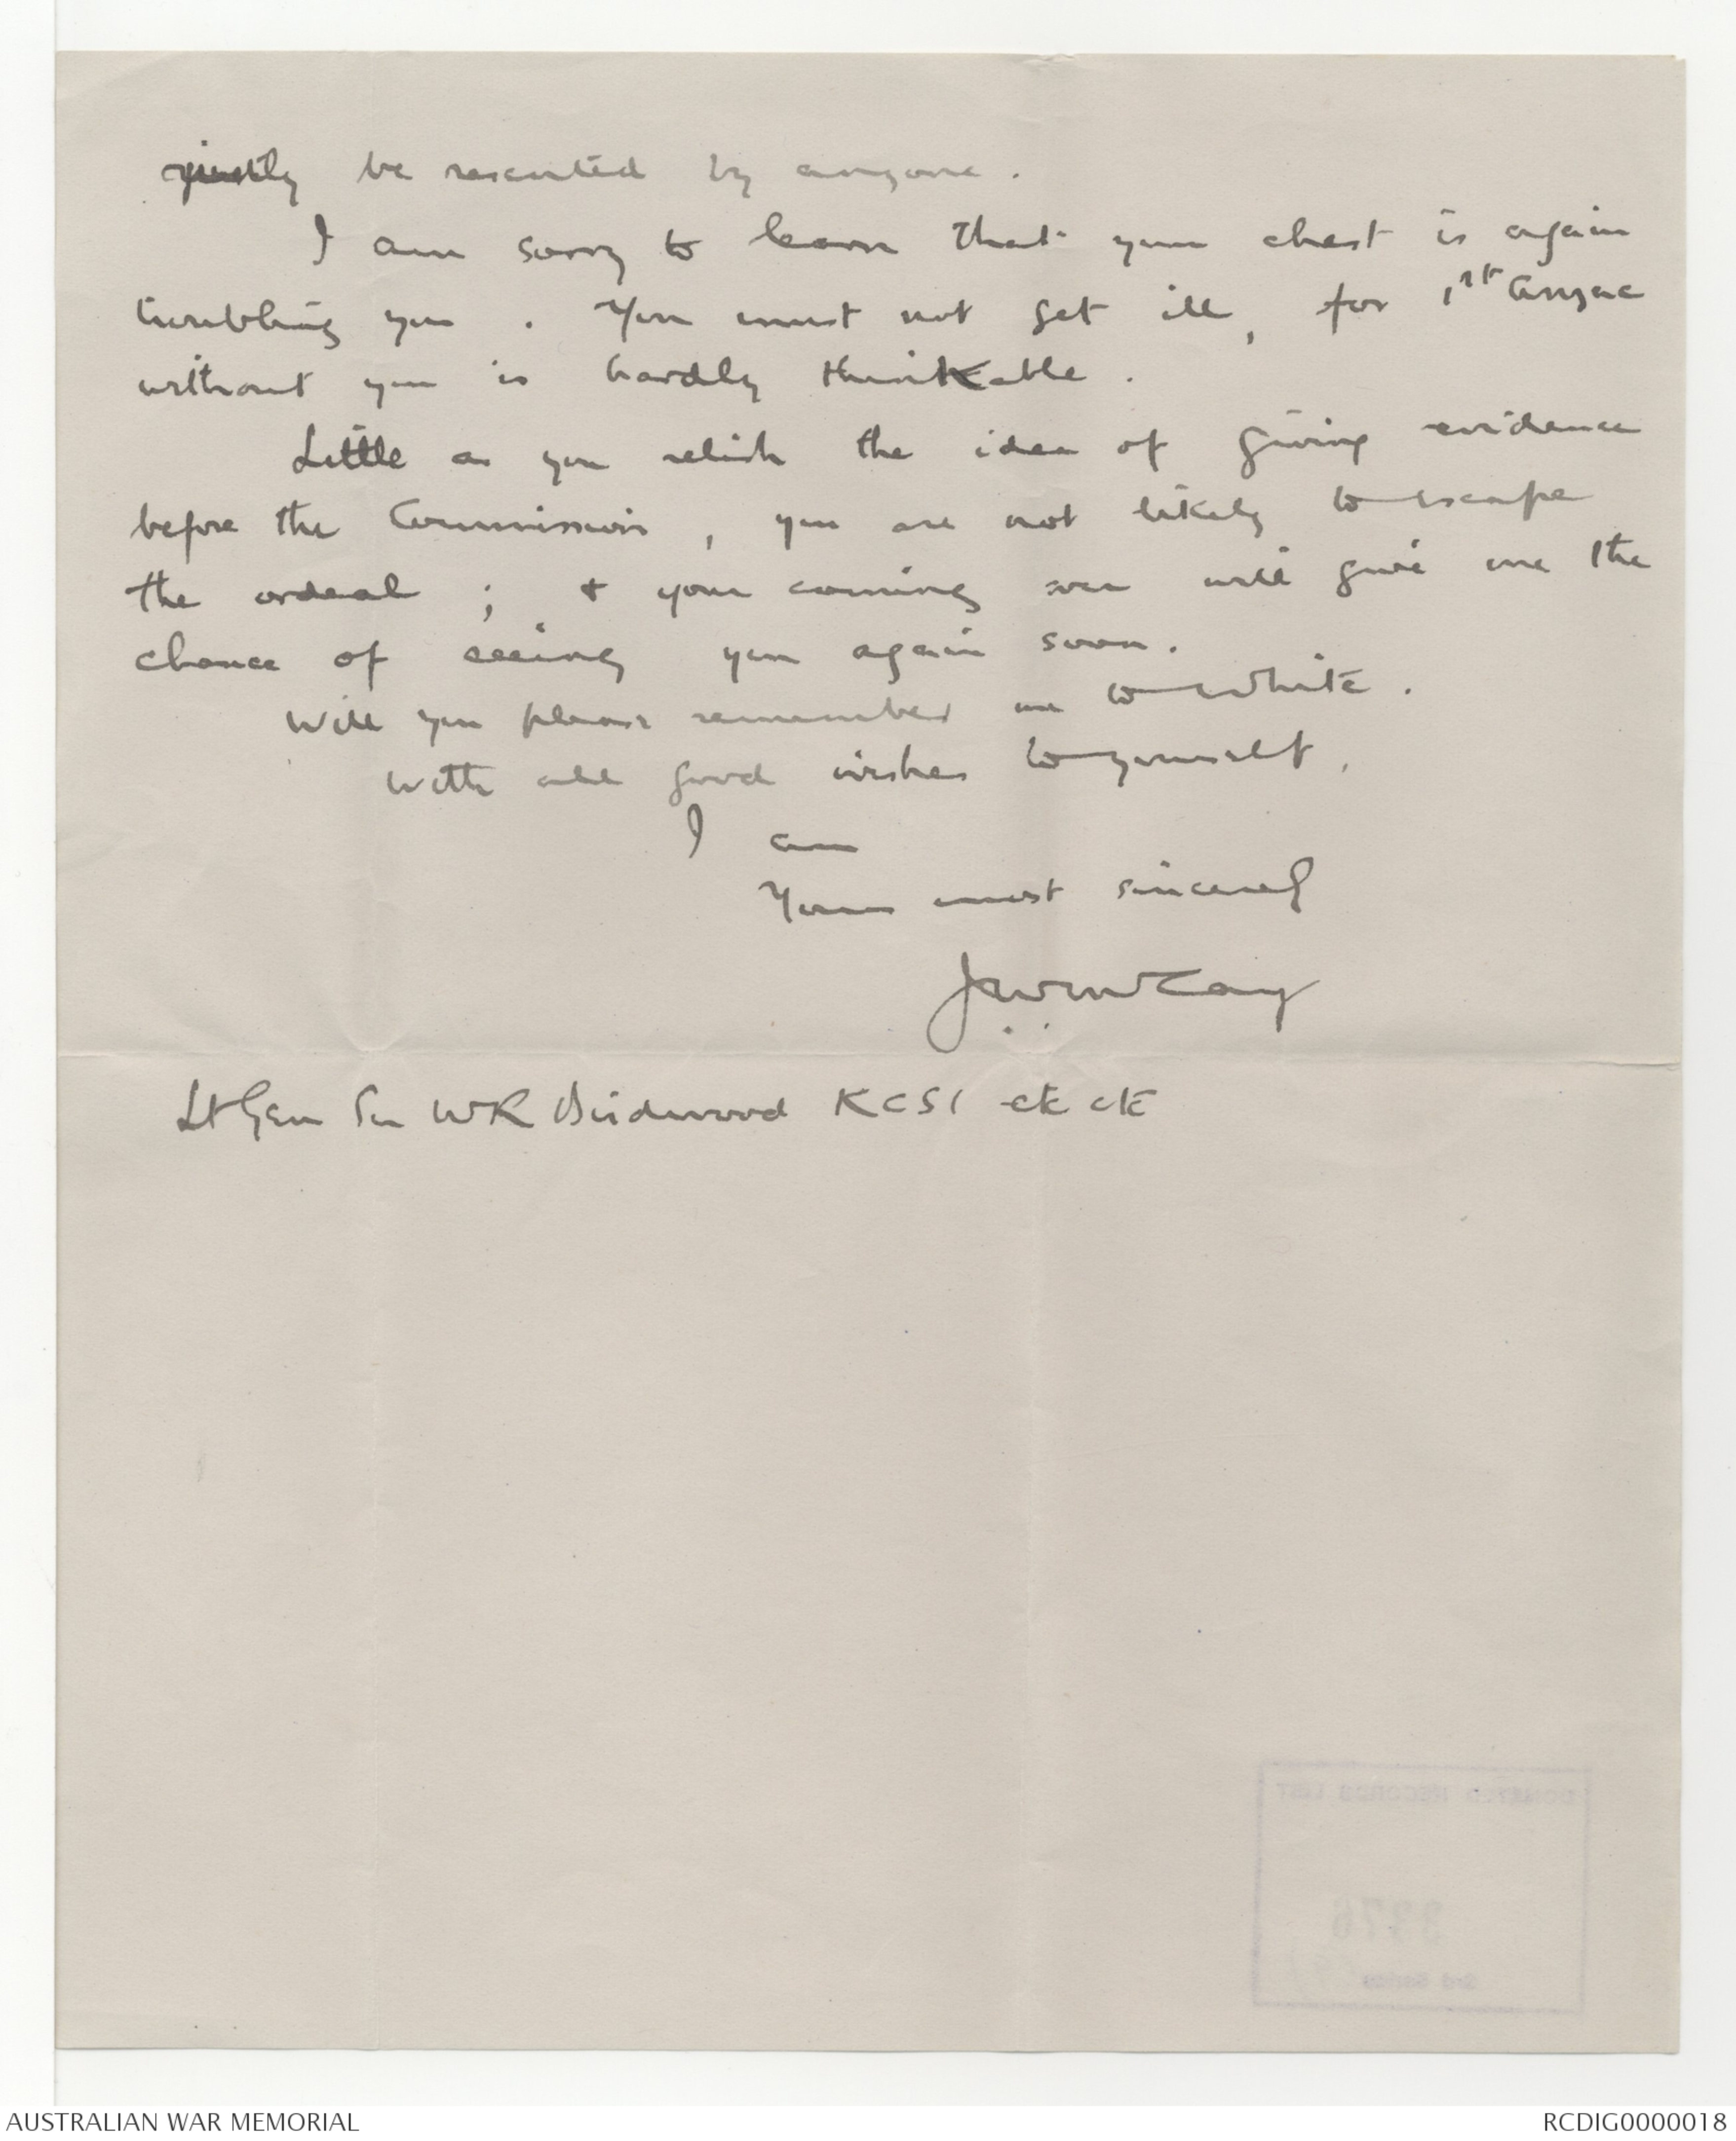 justly be resented by anyone.
I am sorry to learn that your chest is again
troubling you. You must not get ill, for 1st Anzac
without you is hardly thinkable.
Little as you relish the idea of giving evidence
before the Commission, you are not likely to escape
the ordeal; & your coming over will give me the
chance of seeing you again soon.
Will you please remember me to White.
With all good wishes to yourself,
I am
Yours most sincerely
JWMcCay
Lt Gen Sir WR Birdwood KCSI etc etc
DONATED RECORDS LIST
3376
3rd Series
AUSTRALIAN WAR MEMORIAL
RCDIG0000018